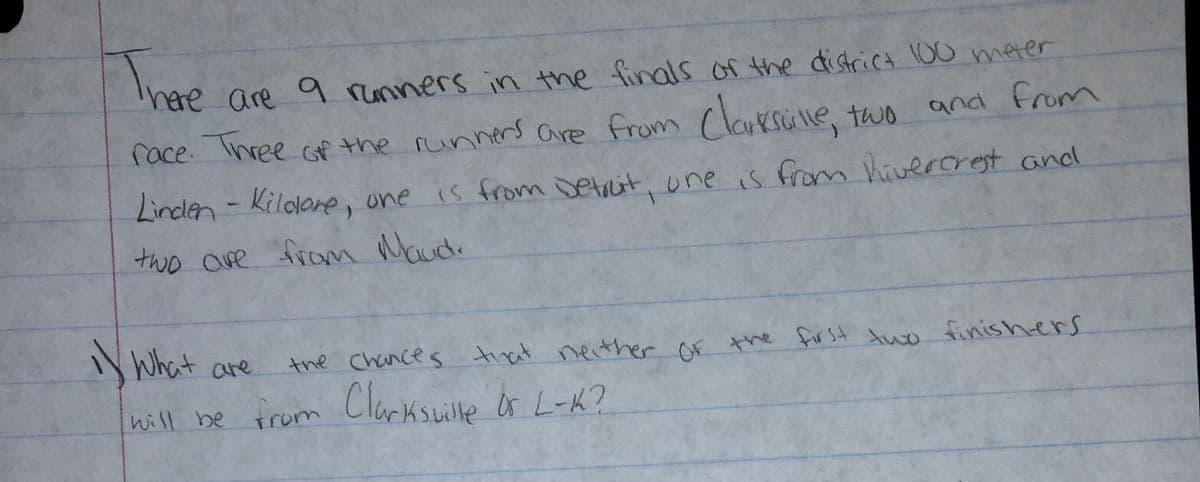 There are 9 runners in the finals of the district 100 meter
race. Three of the runners are from Clarksville, two and from
Linden - Kildare, one is from Detroit, one is from Rivercrest and
two are from Maud.
1) What are the chances that neither of the first two finishers
will be from Clarksville or L-K?